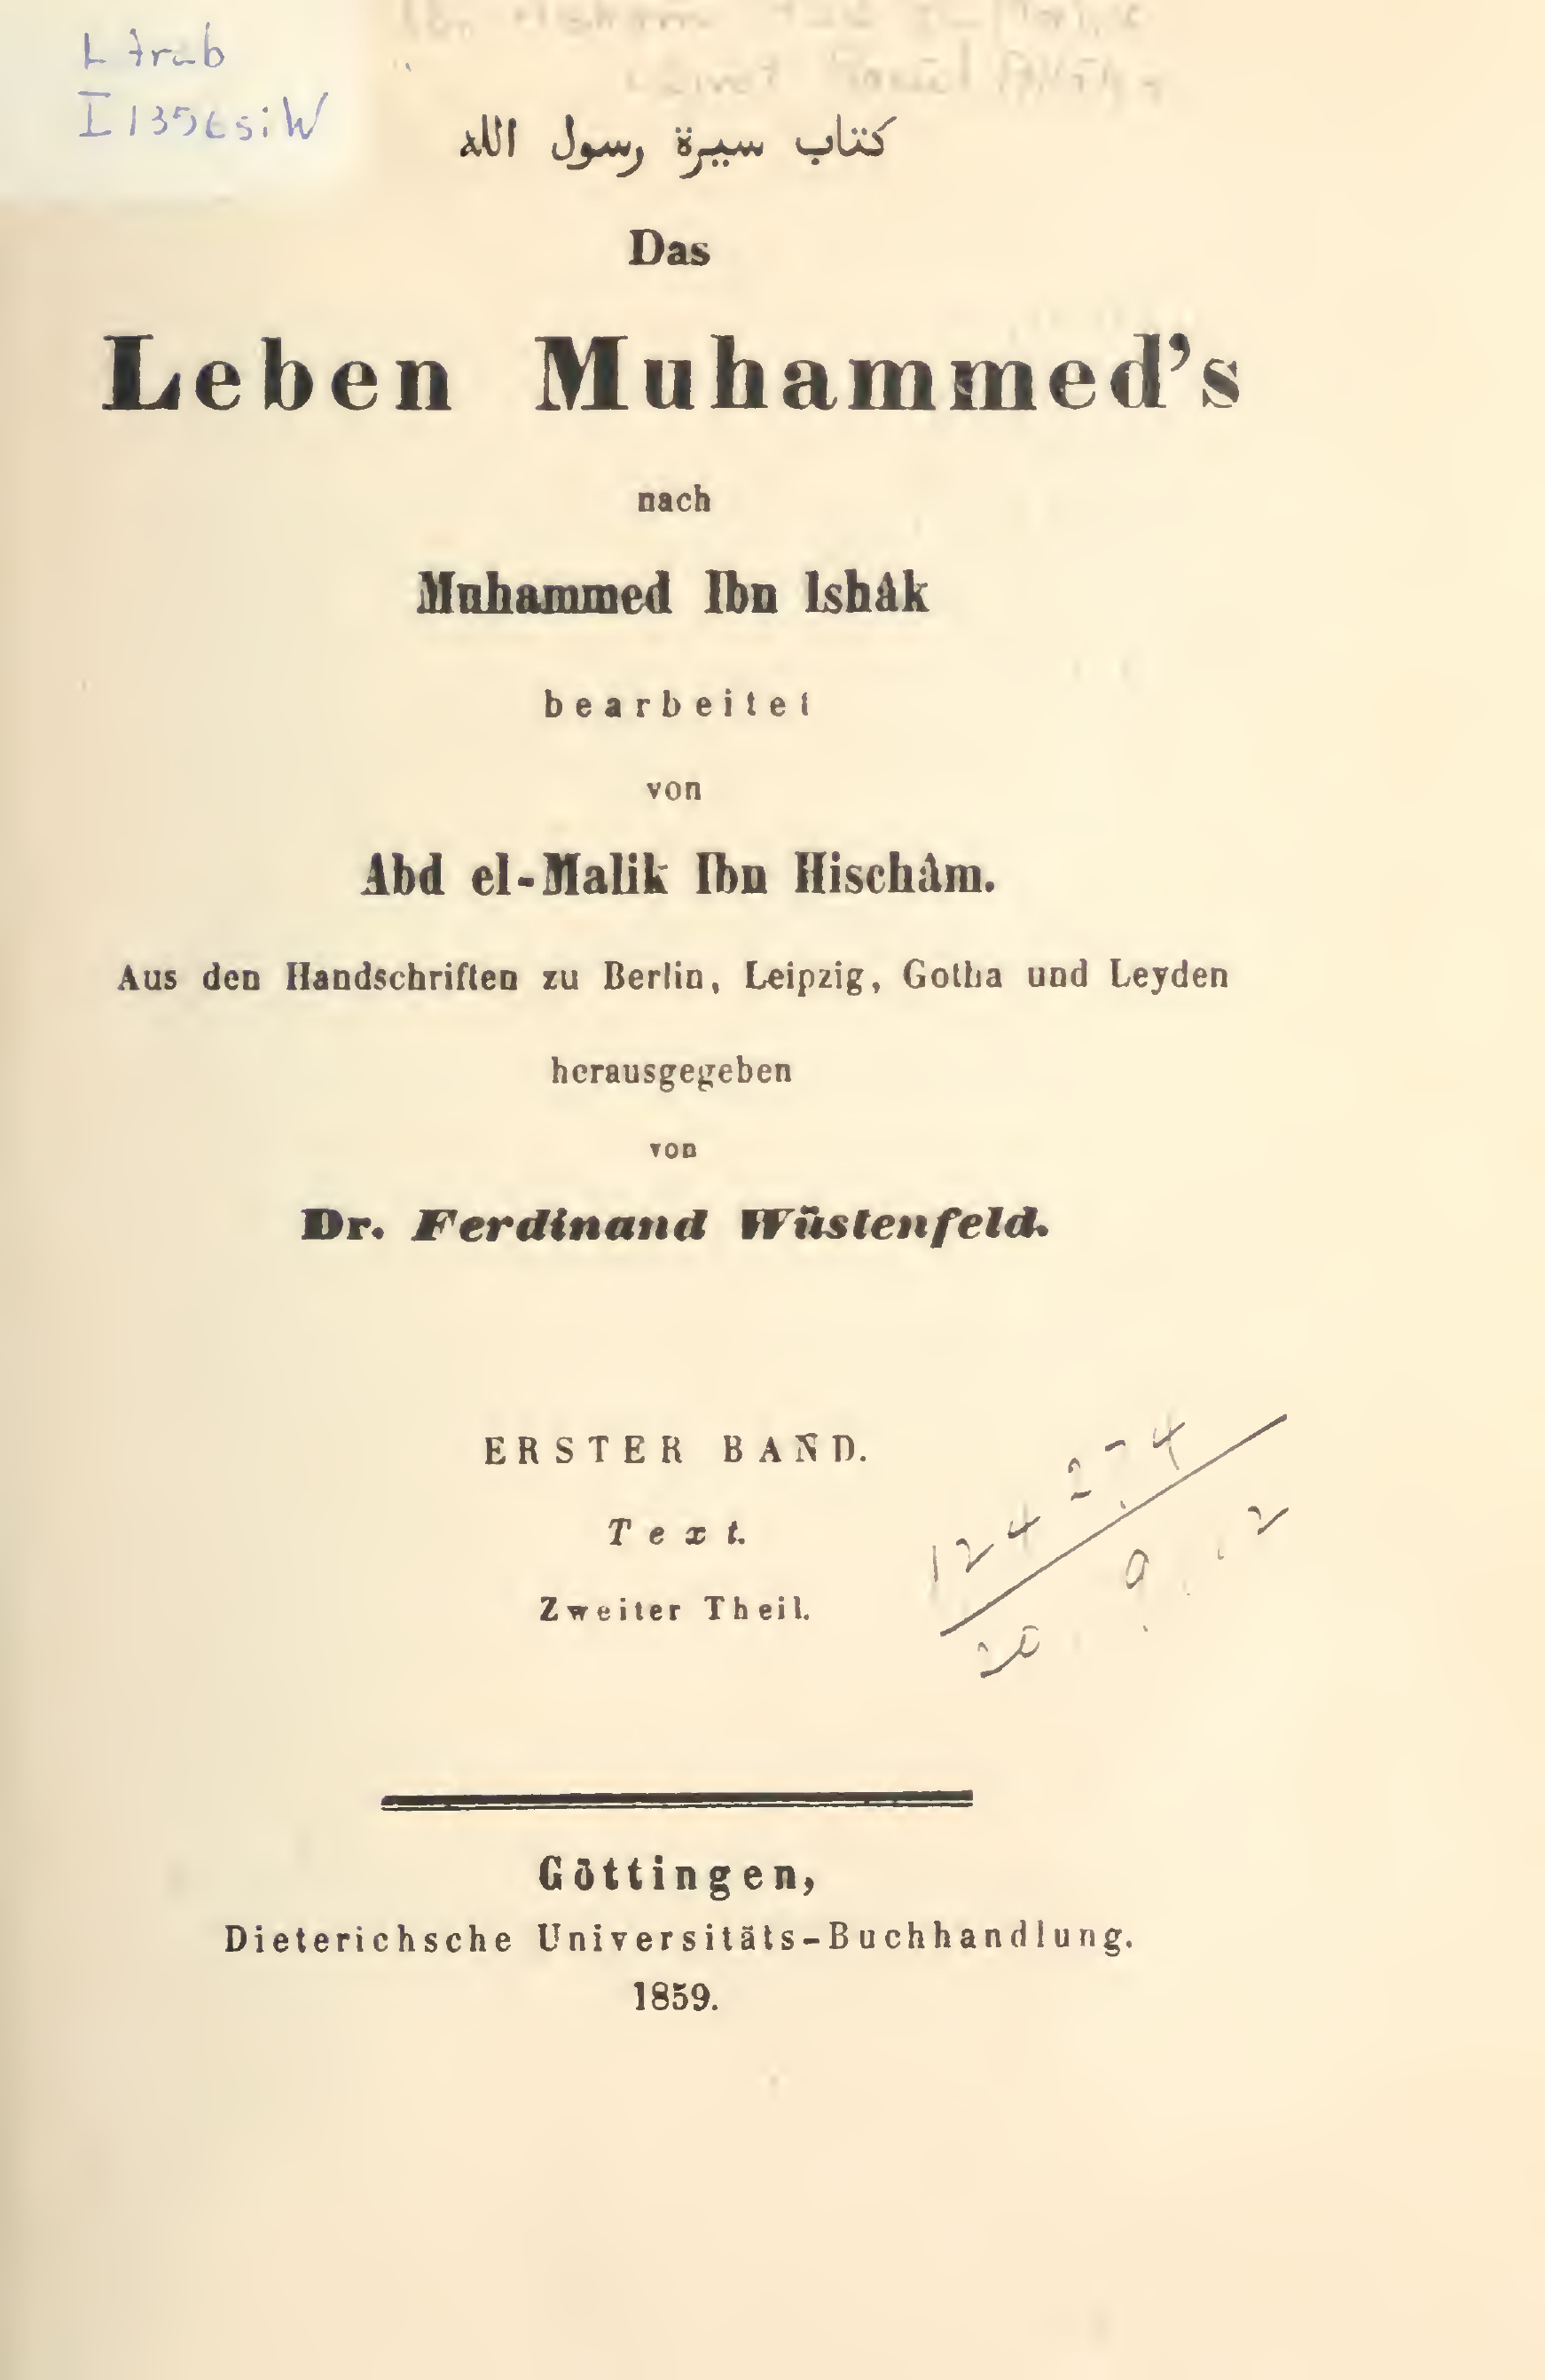 L Arab
I1356siW
كتاب سيرة رسول الله
Das
Leben Muhammed's
nach
Muhammed Ibn Ishâk
bearbeitet
von
Abd el-Malik Ibn Hischâm.
Aus den Handschriften zu Berlin, Leipzig, Gotha und Leyden
herausgegeben
von
Dr. Ferdinand Wüstenfeld.
ERSTER BAND.
Text.
Zweiter Theil.
Göttingen,
Dieterichsche Universitäts-Buchhandlung.
1859.